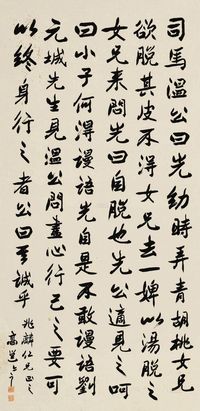 司馬溫公曰光幼時弄青胡桃女兄
欲脫其皮不得女兄去一婢以湯脫之
女兄来問光曰自脫也先公適見之呵
曰小子何得謾語光自是不敢謾語劉
元城先生見溫公問盡心行己之要可
以終身行之者公曰至誠乎
兆麟仁兄正之
高